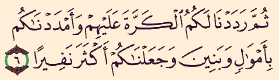 ثُمَّ رَدَدْنَا لَكُمُ ٱلْكَرَّةَ عَلَيْهِمْ وَأَمْدَدْنَـٰكُم
بِأَمْوَٰلٍ وَبَنِينَ وَجَعَلْنَـٰكُمْ أَكْثَرَ نَفِيرًا ٦